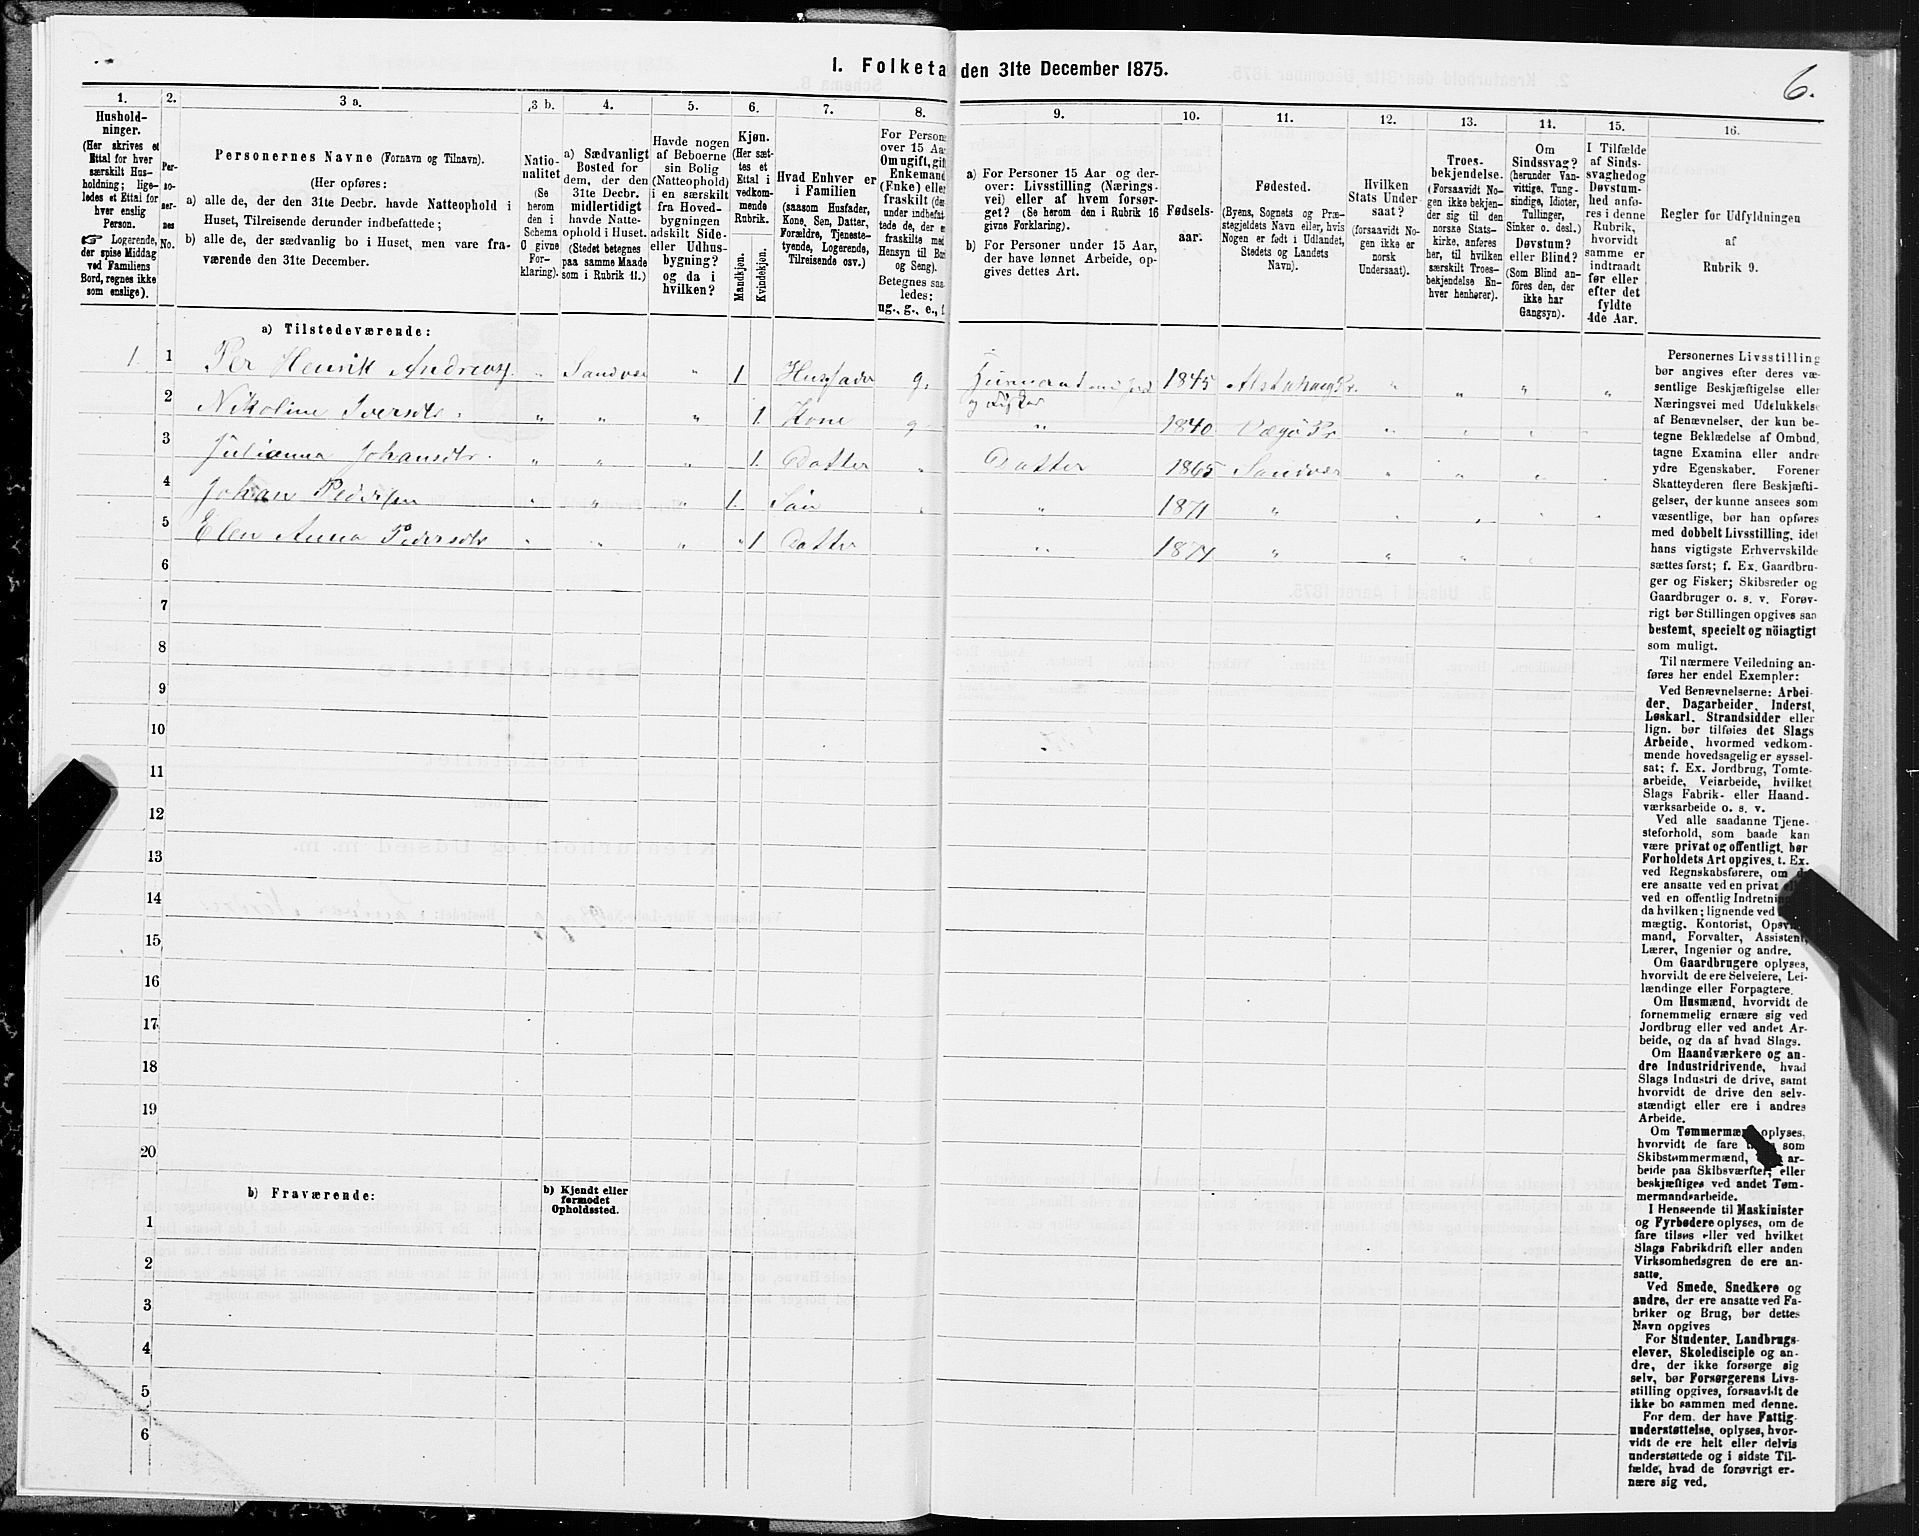 1. Folketa den 31te December 1875.
6.
1.
Hushold-
ninger.
(Her skrives et
Ettal for hver
særskilt Hus-
holdning; lige-
ledes et Ettal for
hver enslig
Person.
Logerende,
der spise Middag
ved Familiens
Bord, regnes ikke
som enslige).
2.
Per-
so-
ner-
nes
No.
3 a.
Personernes Navne (Fornavn og Tilnavn).
(Her opføres:
a) alle de, der den 31te Decbr. havde Natteophold i
Huset, Tilreisende derunder indbefattede;
b) alle de, der sædvanlig bo i Huset, men vare fra-
værende den 31te December.
3 b.
Natio-
nalitet
(Se
herom
den i
Schema
C givne
For-
klaring).
4.
a) Sædvanligt
Bosted for
dem, der den
31te Decbr.
midlertidigt
havde Natte-
ophold i Huset.
(Stedet betegnes
paa samme Maade
som i Rubrik 11.)
5.
Havde nogen
af Beboerne
sin Bolig
(Natteophold)
i en særskilt
fra Hoved-
bygningen
adskilt Side-
eller Udhus-
bygning?
og da i
hvilken?
6.
Kjøn.
(Her sæt-
tes et
Ettal i
vedkom-
mende
Rubrik.
Mandkjøn.
Kvindekjøn.
7.
Hvad Enhver er
i Familien
(saasom Husfader,
Kone, Søn, Datter,
Forældre, Tjeneste-
tyende, Logerende,
Tilreisende osv.)
8.
For Persone
over 15 Aar
Om ugift, gift
Enkemand
(Enke) eller
fraskilt (de
under indbefat-
tede de, der e
fraskilte med
Hensyn til Bo
og Seng).
Betegnes saa
ledes:
ug., g., e., f.
9.
a) For Personer 15 Aar og der-
over: Livsstilling (Nærings-
vei) eller af hvem forsør-
get? (Se herom den i Rubrik 16
givne Forklaring).
b) For Personer under 15 Aar,
der have lønnet Arbeide, op-
gives dettes Art.
10.
Fødsels-
aar.
11.
Fødested.
(Byens, Sognets og Præ-
stegjeldets Navn eller, hvis
Nogen er født i Udlandet,
Stedets og Landets
Navn).
12.
Hvilken
Stats Under-
saat?
(forsaavidt No-
gen ikke er
norsk
Undersaat).
13.
Troes-
bekjendelse.
(Forsaavidt No-
gen ikke bekjen-
der sig til den
norske Stats-
kirke, anføres
her, til hvilken
særskilt Troes-
bekjendelse En-
hver henhører).
14.
Om
Sindssvag?
(herunder Van-
vittige, Tung-
sindige, Idioter,
Tullinger,
Sinker o. desl.)
Døvstum?
eller Blind?
(Som Blind an-
føres den, der
ikke har
Gangsyn).
15.
I Tilfælde
af Sinds-
svaghed og
Døvstum-
hed anfø-
res i denne
Rubrik,
hvorvidt
samme er
indtraadt
før eller
efter det
fyldte
4de Aar.
16.
Regler for Udfyldningen
af
Rubrik 9.
a) Tilstedeværende:
1. 1 Per Henrik Andreas „ Sandvær „ 1 Husfader g. og Fisker 1845 Alstahoug Pr. „ „ „ „
2 Nikoline Iversdtr. „ „ „ 1. Kone g „ 1840 Vægø Pr. „ „ „ „
3 Julianna Johansdtr. „ „ „ 1. Datter „ Datter 1865 Sandvær „ „ „ „
4 Johan Pedersen „ „ „ 1. Søn „ „ 1871 „ „ „ „ „
5 Elen Anna Pedersdtr „ „ „ „ 1 Datter „ 1874 „ „ „ „
6
7
8
9
10
11
12
13
14
15
16
17
18
19
20
b) Fraværende:
b) Kjendt eller
formodet
Opholdssted.
1
2
3
4
5
6
Personernes Livsstilling
bør angives efter deres væ-
sentlige Beskjæftigelse eller
Næringsvei med Udelukkelse
af Benævnelser, der kun be-
tegne Beklædelse af Ombud,
tagne Examina eller andre
ydre Egenskaber. Forener
Skatteyderen flere Beskjæfti-
gelser, der kunne ansees som
væsentlige, bør han opføres
med dobbelt Livsstilling, idet
hans vigtigste Erhvervskilde
sættes først; f. Ex. Gaardbru-
ger og Fisker; Skibsreder og
Gaardbruger o. s. v. Forøv-
rigt bør Stillingen opgives saa
bestemt, specielt og nöiagtigt
som muligt.
Til nærmere Veiledning an-
føres her endel Exempler:
Ved Benævnelserne: Arbei-
der, Dagarbeider, Inderst,
Løskarl, Strandsidder eller
lign. bør tilføies det Slags
Arbeide, hvormed vedkom-
mende hovedsagelig er syssel-
sat; f. Ex. Jordbrug, Tomte-
arbeide, Veiarbeide, hvilket
Slags Fabrik- eller Haand-
værksarbeide o. s. v.
Ved alle saadanne Tjene-
steforhold, som baade kan
være privat og offentligt, bør
Forholdets Art opgives, t. Ex.
ved Regnskabsførere, om d
ere ansatte ved en privat el
ved en offentlig Indretning
da hvilken; lignende ved
mægtig, Kontorist, Opsyns-
mand, Forvalter, Assistent,
Lærer, Ingeniør og andre.
Om Gaardbrugere oplyses,
hvorvidt de ere Selveiere, Lei-
lændinge eller Forpagtere.
Om Husmænd, hvorvidt de
fornemmelig ernære sig ved
Jordbrug eller ved andet Ar-
beide, og da af hvad Slags.
Om Haandværkere og an-
dre Industridrivende, hvad
Slags Industri de drive, samt
hvorvidt de drive den selv-
stændigt eller ere i andres
Arbeide.
Om Tømmermæn oplyses,
hvorvidt de fare som
Skibstømmermænd, ar-
beide paa Skibsværfter, eller
beskjæftiges ved andet Tøm-
mermandsarbeide.
I Henseende til Maskinister
og Fyrbødere oplyses, om de
fare tilsøs eller ved hvilket
Slags Fabrikdrift eller anden
Virksomhedsgren de ere an-
satte.
Ved Smede, Snedkere og
andre, der ere ansatte ved Fa-
briker og Brug, bør dettes
Navn opgives
For Studenter, Landbrugs-
elever, Skoledisciple og an-
dre, der ikke forsørge sig
selv, bør Forsørgerens Livs-
stilling opgives, forsaavidt de
ikke bo sammen med denne.
For dem, der have Fattig-
understøttelse, oplyses, hvor-
vidt de ere helt eller delvis
understøttede og i sidste Til-
fælde, hvad de forøvrigt er-
nære sig ved.